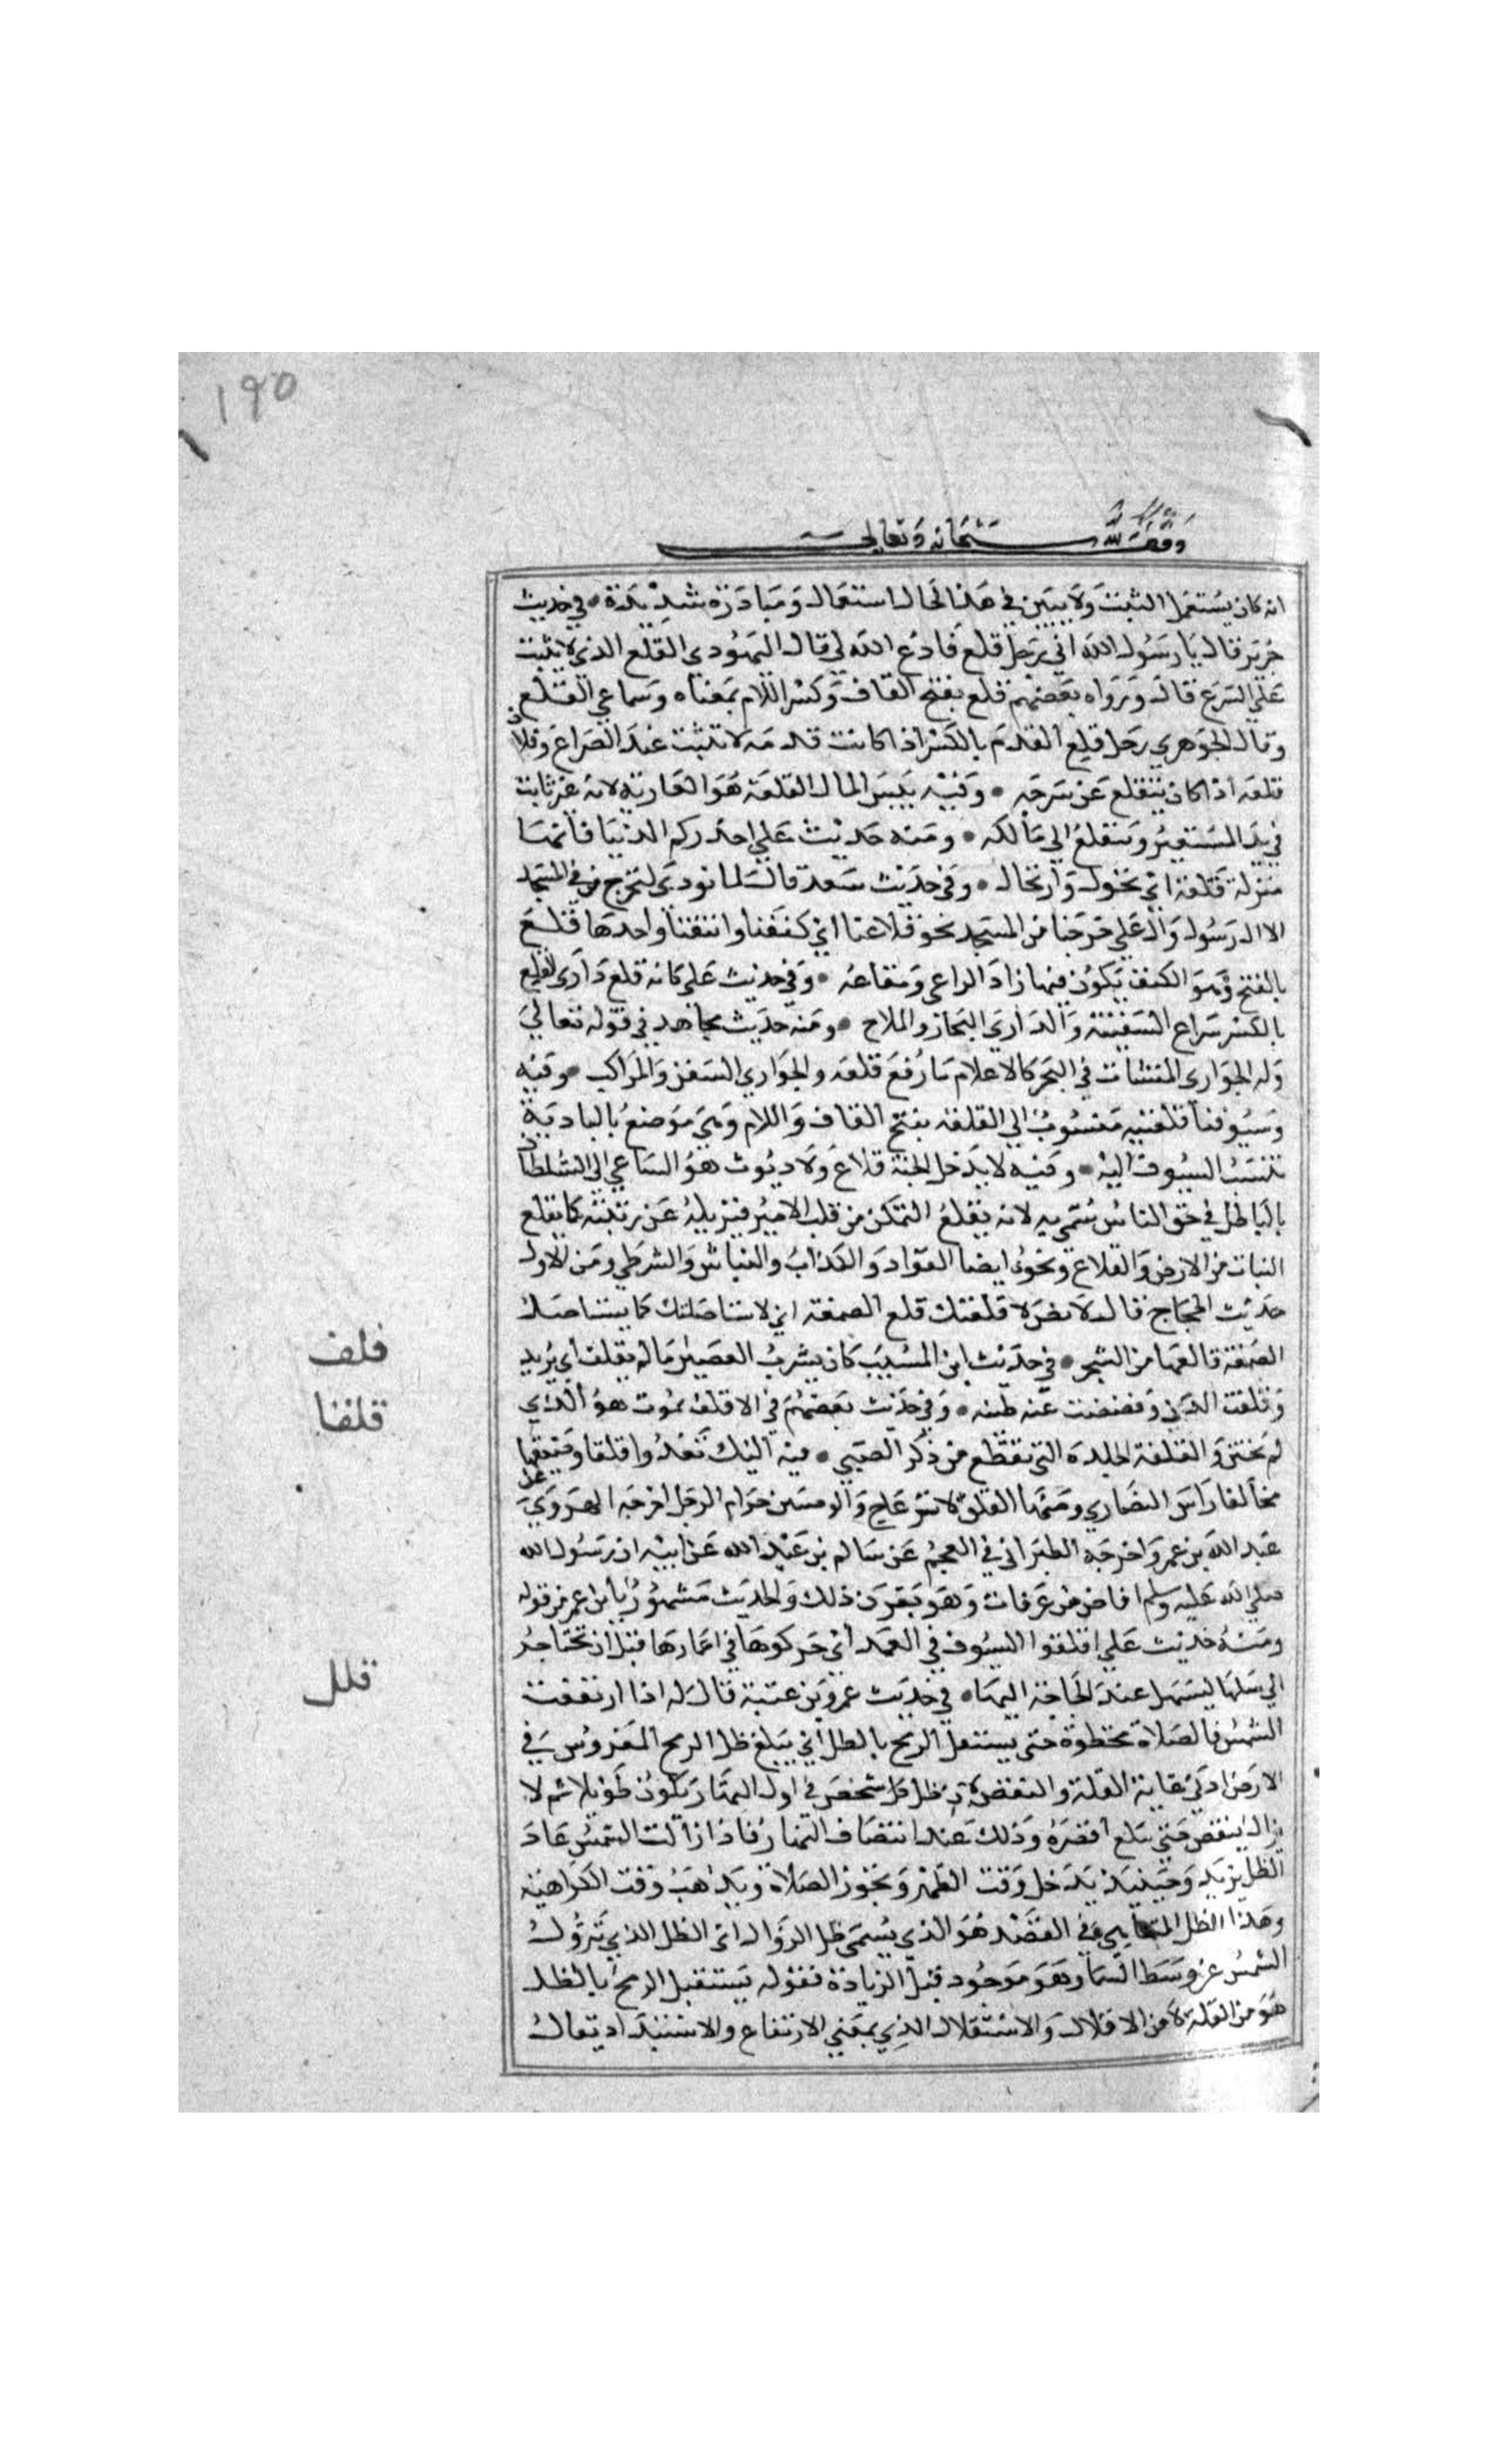 190
وقف لله سبحانه وتعالى
انه كان يستعمل التثبت ولا يبين في هذا الحال استعمال ومبادرة شديدة • في حديث
جرير قال يا رسول الله اني رجل قلع فادع الله لي قال الهروي القلع الذي لا يثبت
علي السرج قال ورواه بعضهم قلع بفتح القاف وكسر اللام بمعناه وسماعي القلع
وقال الجوهري رجل قلع القدم بالكسر اذا كانت قدمه لا تثبت عند الصراع وفلان
قلعه اذا كان يتقلع عن سرجه • وفيه بيس المال القلعة هو العارية لانه غير ثابت
في يد المستعير ومنقلع الي مالكه • ومنه حديث علي احذركم الدنيا فانها
منزلة قلعة اي تحول وارتحال • وفي حديث سعد قال لما نودي لتخرج من في المسجد
الا ال رسول وال علي خرجنا من المسجد نحو قلاعنا اي كنفنا وامتعتنا واحدها قلع
بالفتح وهو الكنف يكون فيها زاد الراعي ومتاعه • وفي حديث علي كانه قلع داري القلع
بالكسر شراع السفينة والداري البحار والملاح • ومنه حديث مجاهد في قوله تعالي
وله الجواري المنشات في البحر كالاعلام ما رفع قلعه والجواري السفن والمراكب • وفيه
وسيوفنا قلعية منسوب الي القلعة بفتح القاف واللام وهي موضع بالبادية
تنسب السيوف اليه • وفيه لا يدخل الجنة قلاع ولا ديوث هو الساعي الي السلطان
بالباطل في حق الناس سمي به لانه يقلع المتمكن من قلب الامير فيزيله عن رتبته كما يقلع
النبات من الارض والقلاع ونحوه ايضا القواد والكذاب والنباش والشرطي ومن الاول
حديث الحجاج قال لانس لاقلعنك قلع الصمغة اي لاستاصلنك كما يستاصل
الصمغة قالعها من الشجر • في حديث ابن المسيب كان يشرب العصير ما لم يقلف اي يزبد
وقلفت الدن وفضضت عنه طينه • وفي حديث بعضهم في الاقلف يموت هو الذي
لم يختتن والقلفة الجلدة التي تقطع من ذكر الصبي • فيه اليك تعدوا قلقا وضينها
مخالفا راس النصاري ومنها القلق الانزعاج والوضين حزام الرحل اخرجه الهروي عن
عبد الله بن عمر واخرجه الطبراني في المعجم عن سالم بن عبد الله عن ابيه ان رسول الله
صلي الله عليه وسلم افاض من عرفات وهو يقول ذلك والحديث مشهور بابن عمر من قوله
ومنه حديث علي اقلقوا السيوف في الغمد اي حركوها في اغمادها قبل ان تحتاجوا
الي سلها ليسهل عند الحاجة اليها • في حديث عمرو بن عتبة قال له اذا ارتفعت
الشمس فالصلاة محظورة حتي يستقل الرمح بالظل اي يبلغ ظل الرمح المغروس في
الارض ادني غاية القلة والنقص لان ظل كل شخص في اول النهار يكون طويلا ثم لا
يزال ينقص حتي يبلغ اقصره وذلك عند انتصاف النهار فاذا زالت الشمس عاد
الظل يزيد وحينيذ يدخل وقت الظهر وتجوز الصلاة ويذهب وقت الكراهية
وهذا الظل المتناهي في القصر هو الذي يسمي ظل الزوال اي الظل الذي تزول
الشمس عن وسط السما وهو موجود قبل الزيادة فقوله يستقل الرمح بالظل
هو من القلة لا من الاقلال والاستقلال الذي بمعني الارتفاع والاستبداد يقال
قلف
قلقا
قلل